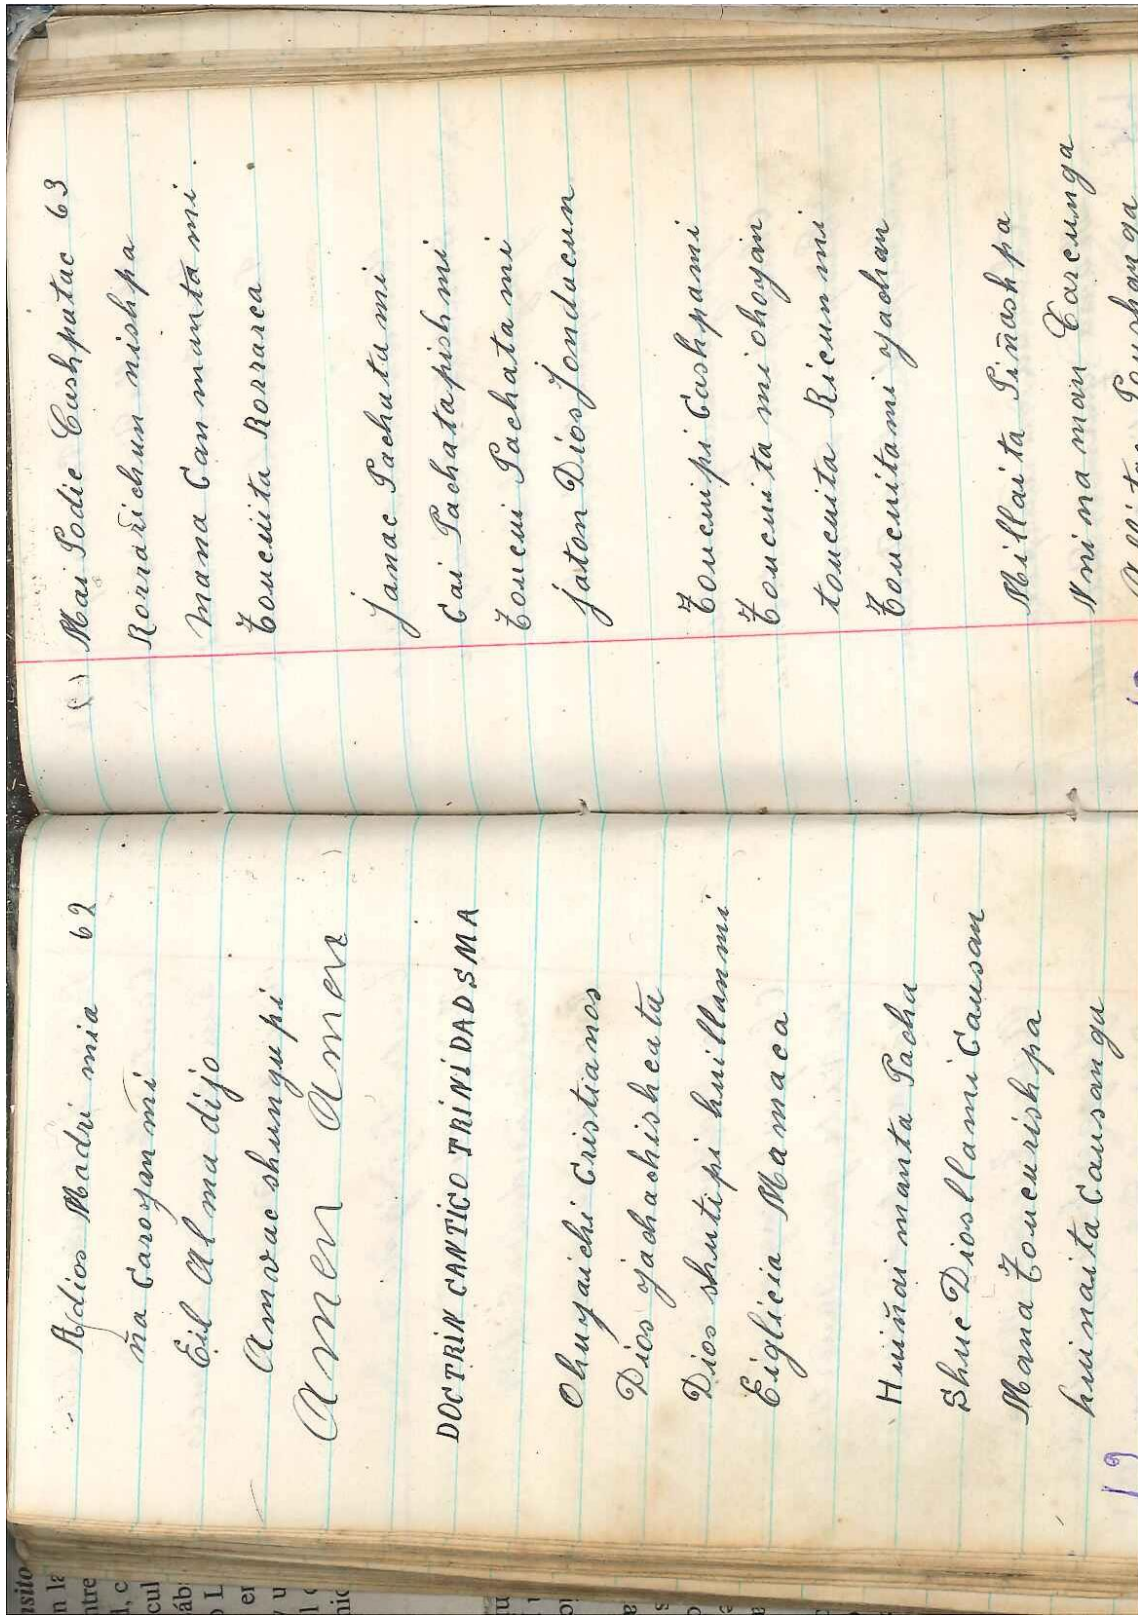 Adios Madri mia 62
ña Caroyan mi
Eil Alma dijo
Amvac shungu pi
Amen Amen
DOCTRIN CANTICO TRINIDAD SMA
Ohuyaichi Cristianos
Dios yachachishcata
Dios shutipi huillanmi
Eiglicia Mamaca
Huiñai manta Pacha
Shuc Diosllami Causan
Mana Toucurishpa
huinaita Causanga
19
(-) Mai Podic Cashpatac 63
Rorrarichun nishpa
Mana Can manta mi
Toucuita Rorrarca
janac Pachatami
Cai Pachatapishmi
Toucui Pachatami
jaton Dios jondacun
Toucuipi Cashpami
Toucuita mi ohoyan
toucuita Ricunmi
Toucuitami yachan
Millaita Piñashpa
Nninaman Carcunga